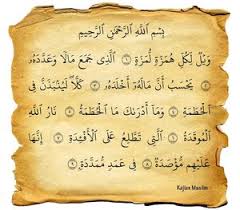 بِسْمِ ٱللَّهِ ٱلرَّحْمَٰنِ ٱلرَّحِيمِ
وَيْلٌ لِّكُلِّ هُمَزَةٍ لُّمَزَةٍ ١ ٱلَّذِى جَمَعَ مَالًا وَعَدَّدَهُۥ
٢ يَحْسَبُ أَنَّ مَالَهُۥٓ أَخْلَدَهُۥ ٣ كَلَّا لَيُنۢبَذَنَّ فِى
ٱلْحُطَمَةِ ٤ وَمَآ أَدْرَىٰكَ مَا ٱلْحُطَمَةُ ٥ نَارُ ٱللَّهِ
ٱلْمُوقَدَةُ ٦ ٱلَّتِى تَطَّلِعُ عَلَى ٱلْأَفْـِٔدَةِ ٧ إِنَّهَا
عَلَيْهِم مُّؤْصَدَةٌ ٨ فِى عَمَدٍ مُّمَدَّدَةٍۭ ٩
Kajian Muslim